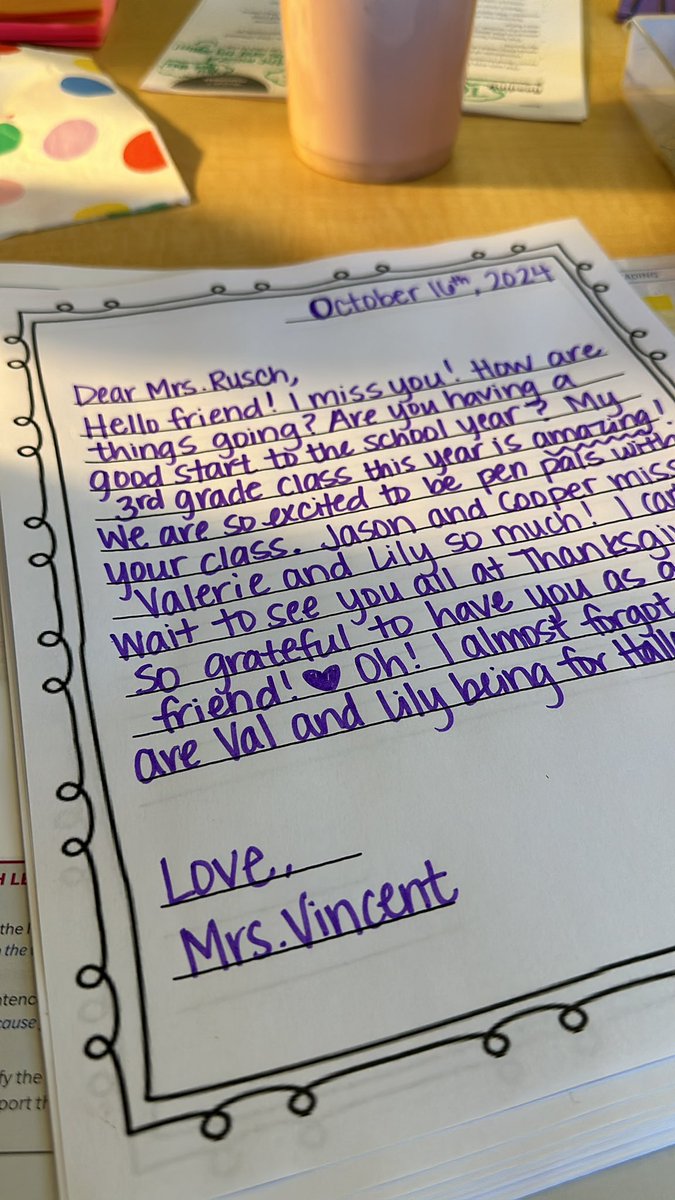 October 16th, 2024
Dear Mrs. Rusch,
Hello friend! I miss you! How are
things going? Are you having a
good start to the school year? My
3rd grade class this year is amazing!
We are so excited to be pen pals with
your class. Jason and Cooper miss
Valerie and Lily so much! I
wait to see you all at
so grateful to have you as a
friend! ♥ Oh! I almost forgot
are Val and Lily being for
Love,
Mrs. Vincent
the
the
cause
fy the
port